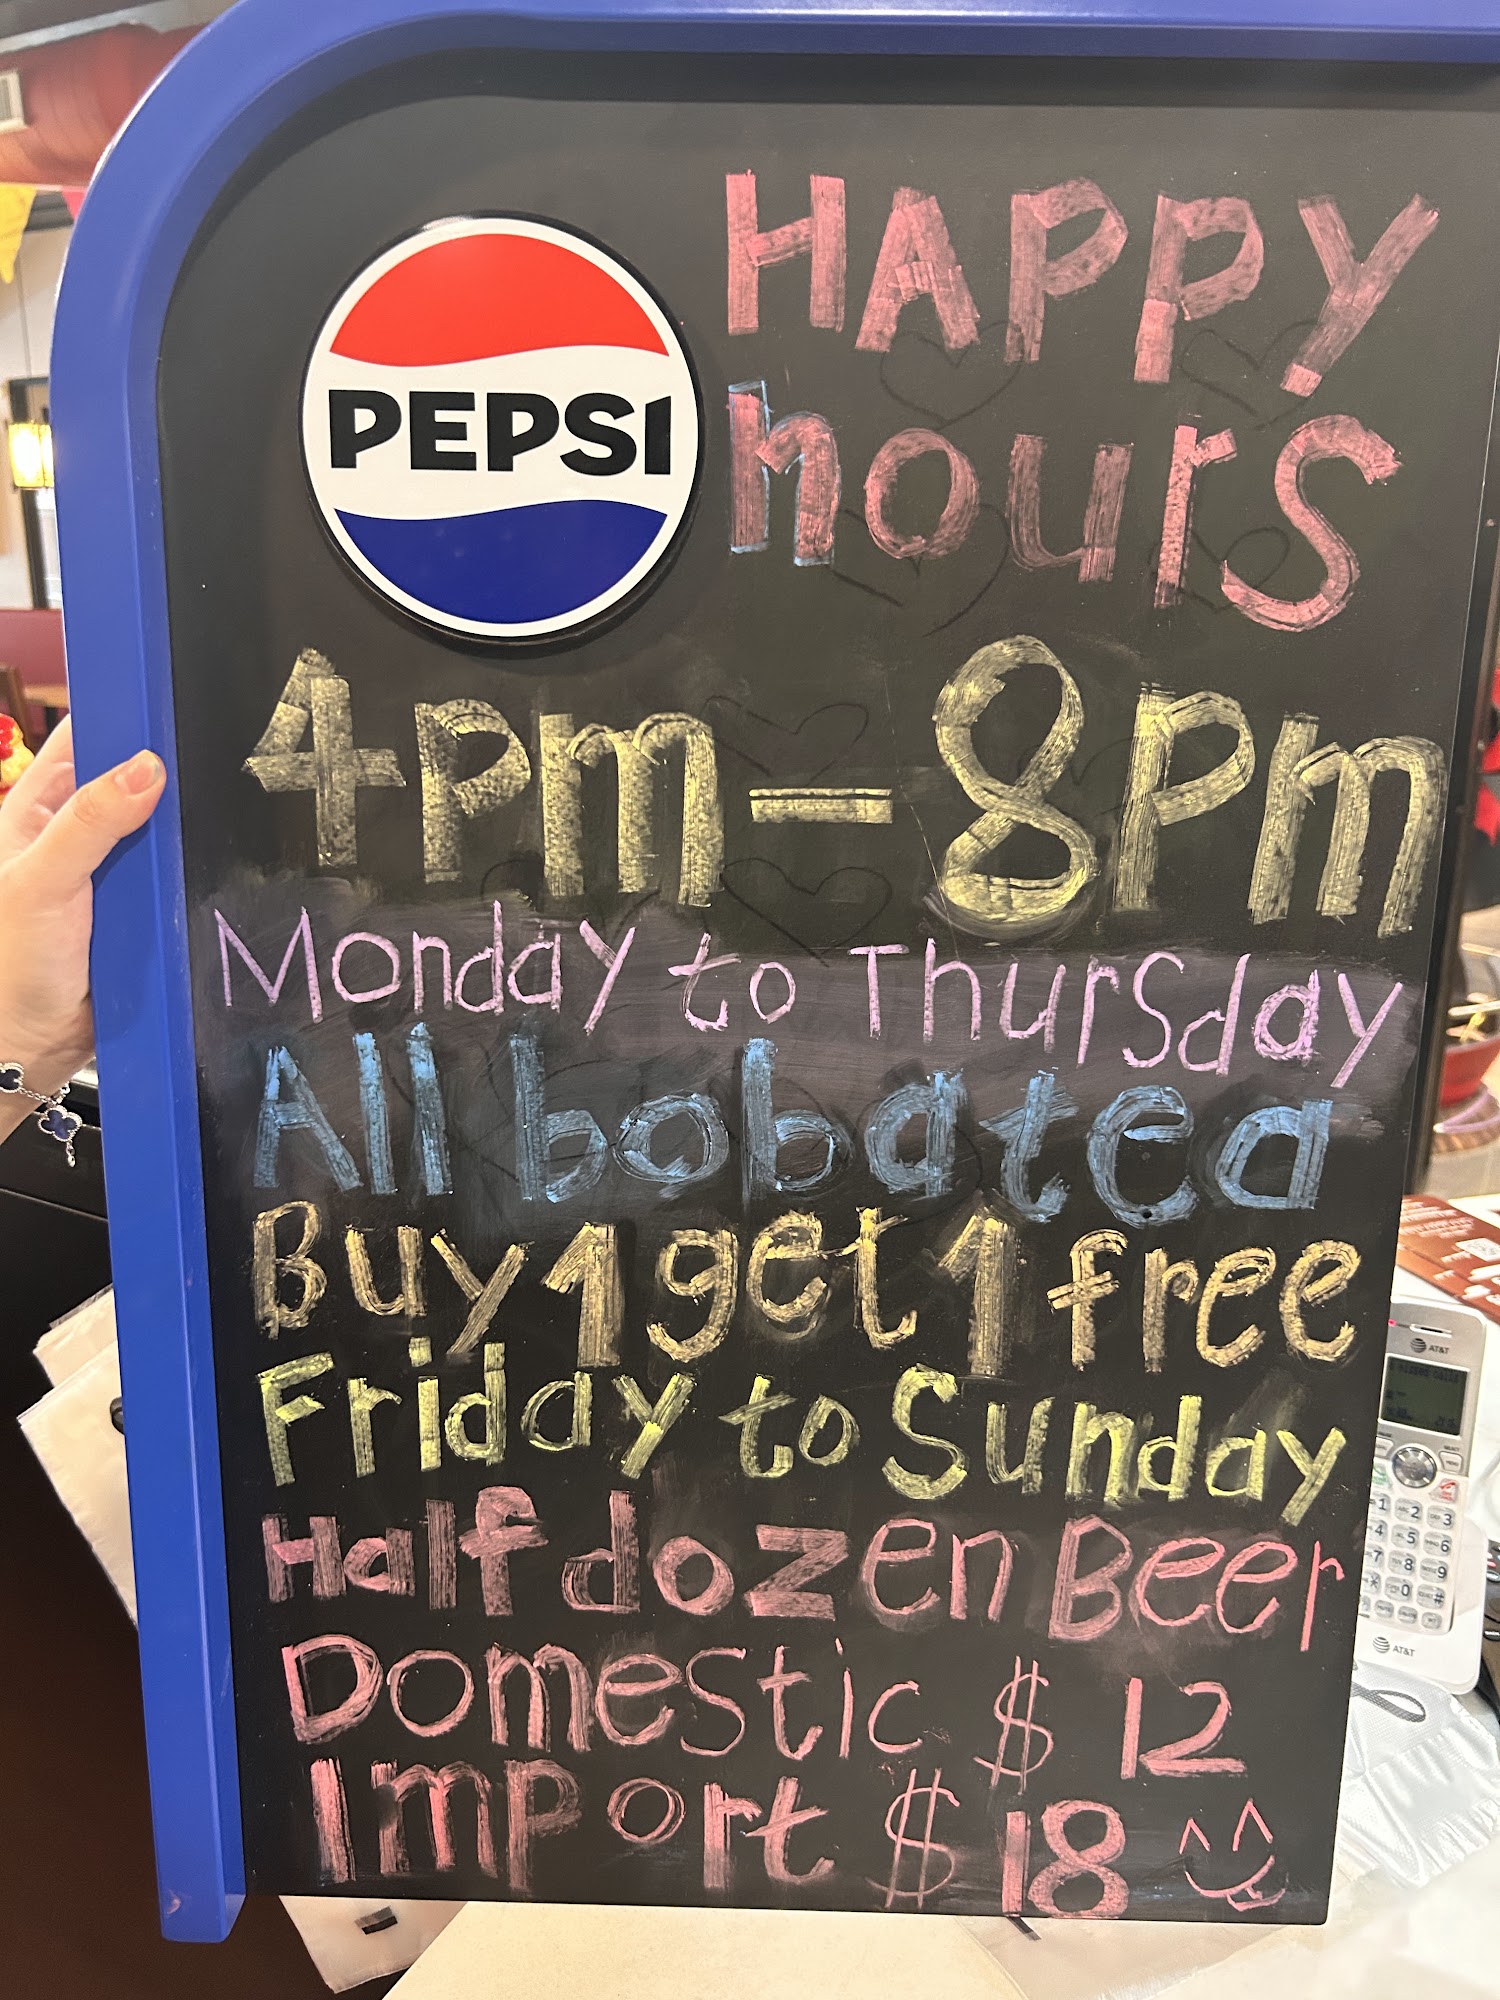 PEPSI
HAPPY
hours
4pm - 8pm
Monday to Thursday
All bobatea
Buy 1 get 1 free
Friday to Sunday
Half dozen Beer
Domestic $ 12
Import $ 18
AT&T
AT&T